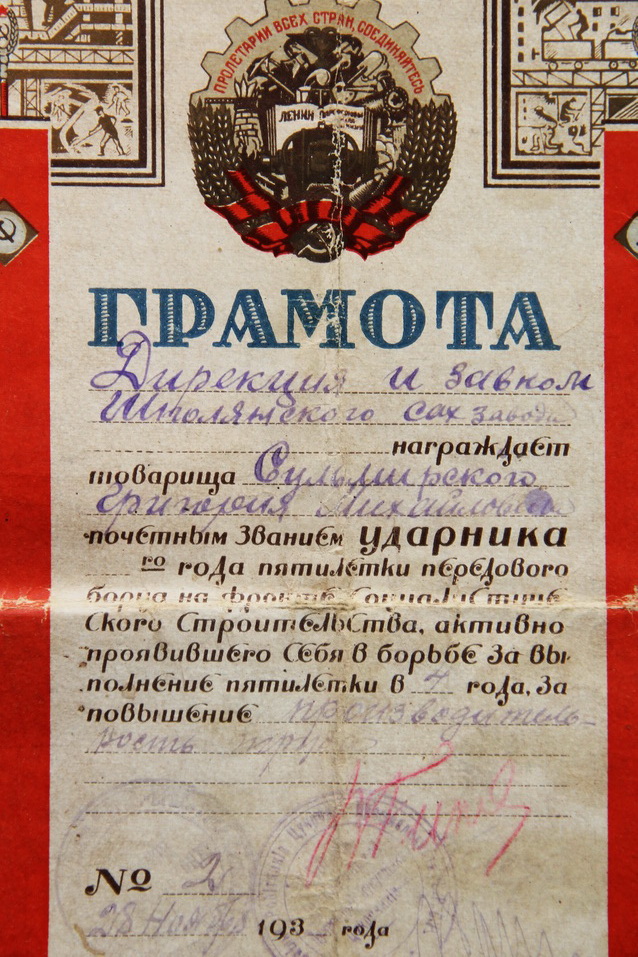 ПРОЛЕТАРИИ ВСЕХ СТРАН, СОЕДИНЯЙТЕСЬ
ЛЕНИН
ГРАМОТА
Дирекция и завком
Шполянского сах завода
награждает
товарища Сульмирского
Григория Михайловича
почетным званием ударника
го года пятилетки передового
борца на фронте социалистиче
ского строительства, активно
проявившего себя в борьбе за вы
полнение пятилетки в 4 года, за
повышение производитель-
ность
№ 2
28 Ноября 193 года